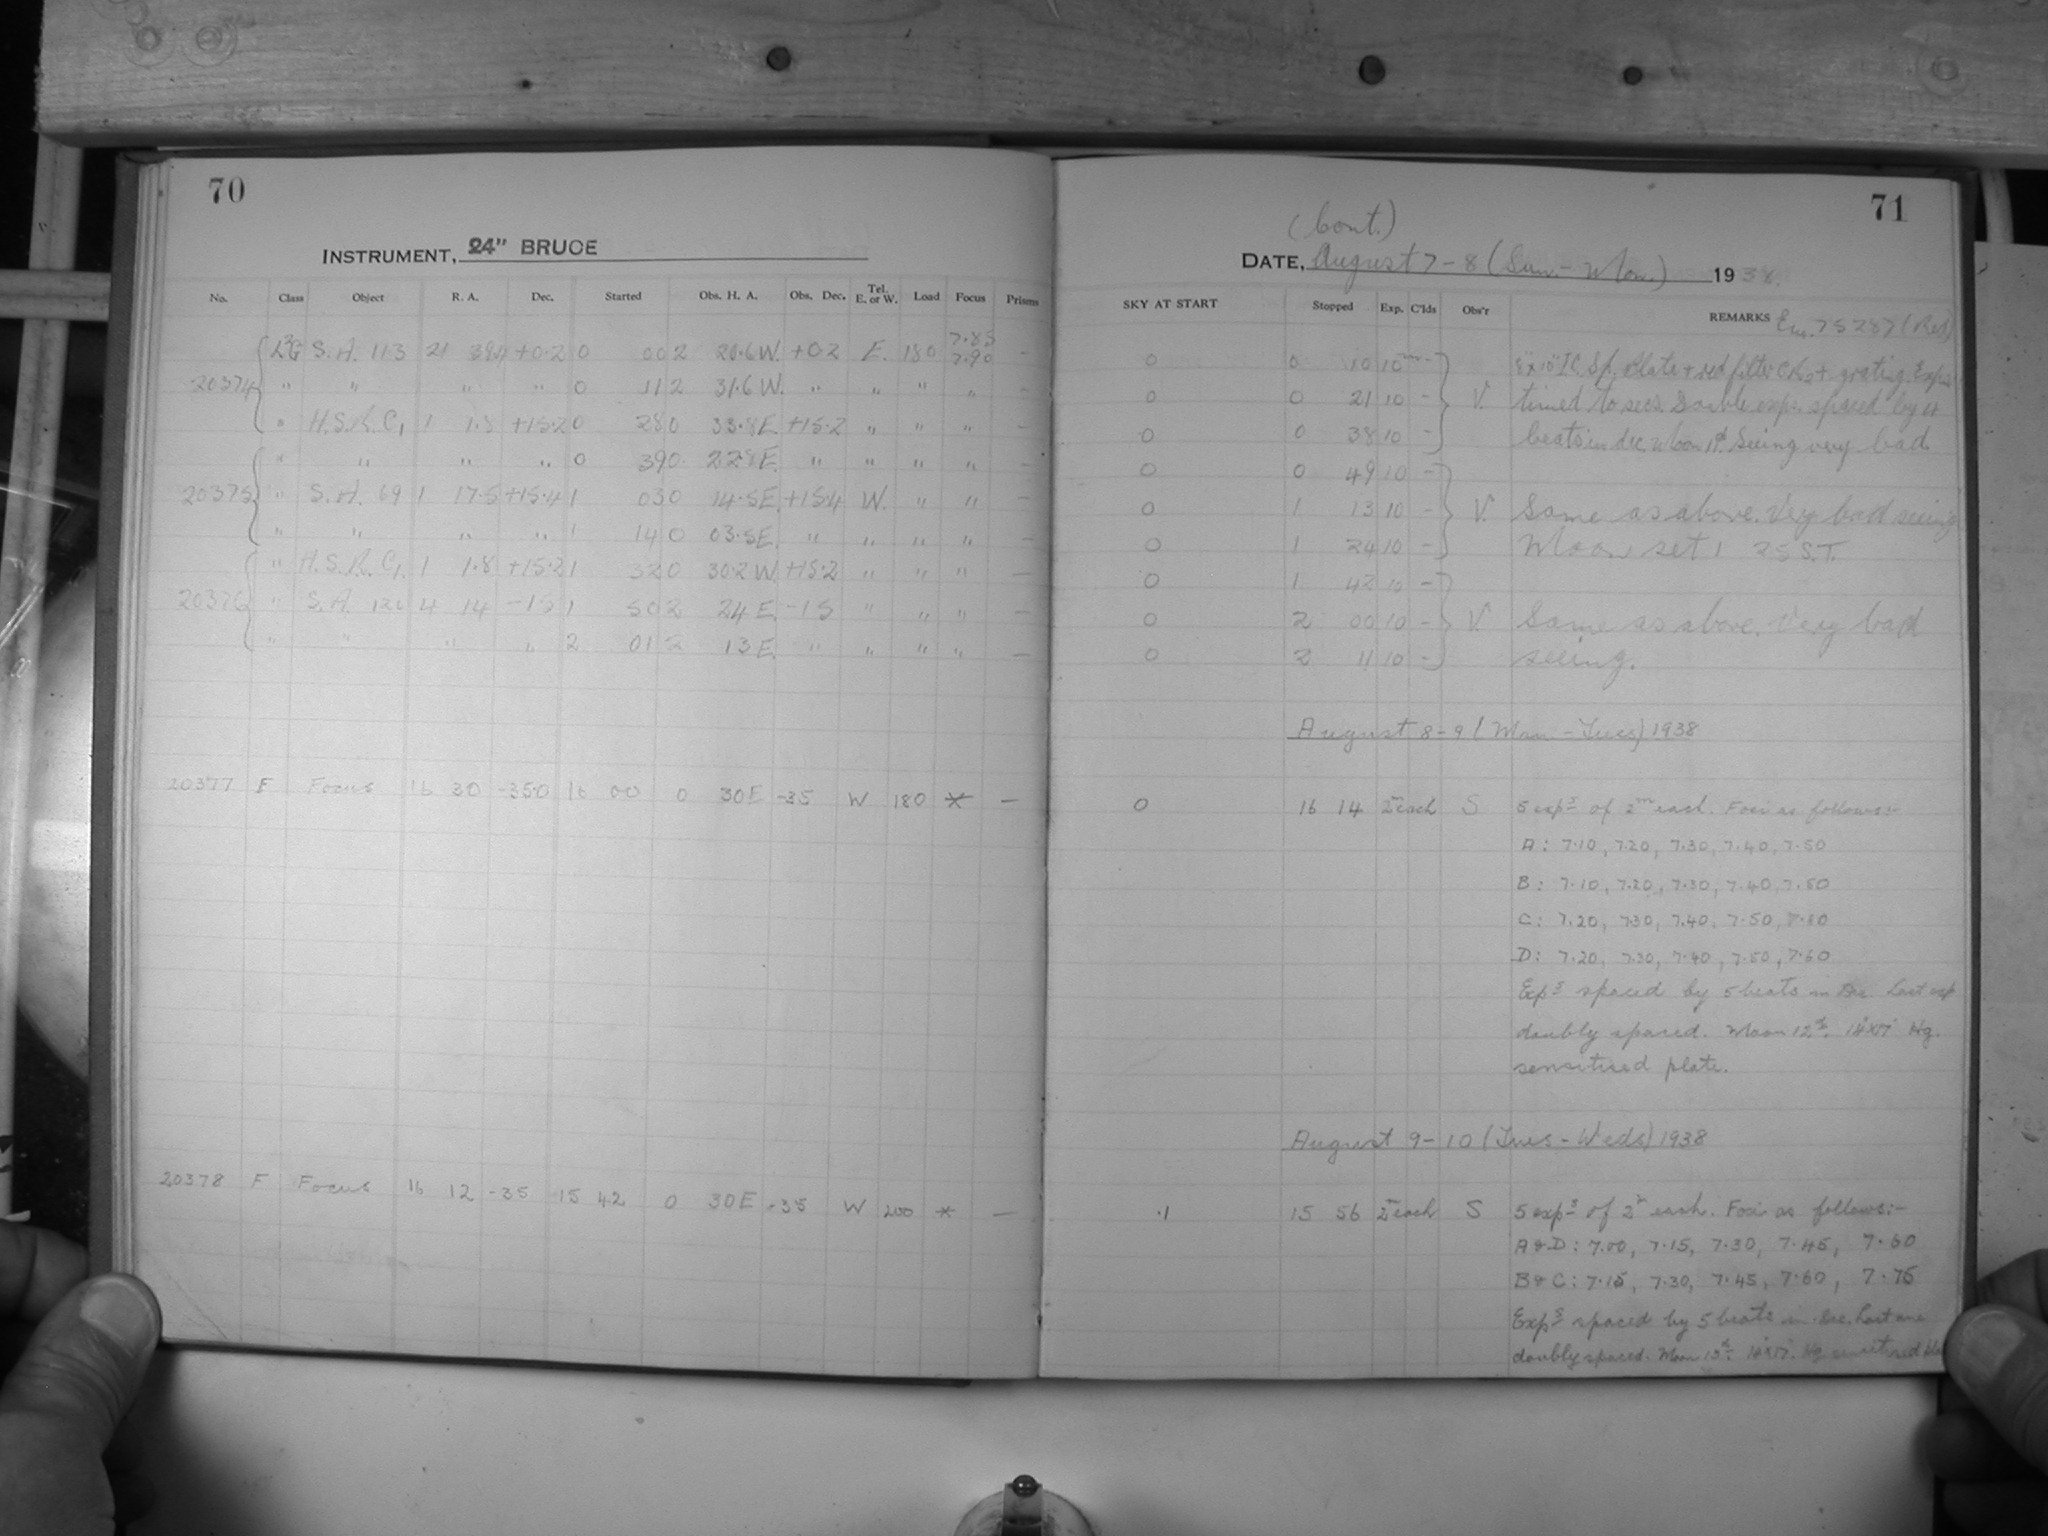 70
INSTRUMENT, 24" BRUCE
No. Class Object R. A. Dec. Started Obs. H. A. Obs. Dec. Tel. E. or W. Load Focus Prisms
S.A. 113 21 39.4 +0.2 0 00 2 20.6 W. +0.2 E. 180 7.85 7.90 -
20374 " " " " 0 11 2 31.6 W. " " " " -
" H.S.R.C, 1 1.8 +15.2 0 28 0 33.8 E. +15.2 " " " -
" " " " 0 39 0 22.8 E. " " " " -
20375 " S.A. 69 1 17.5 +15.4 1 03 0 14.5 E. +15.4 W. " " -
" " " " 1 14 0 03.5 E. " " " " -
" H.S.R.C, 1 1.8 +15.2 1 32 0 30.2 W. +15.2 " " " -
20376 " S.A. 120 4 14 -15 1 50 2 24 E. -15 " " " -
" " " " 2 01 2 13 E. " " " " -
20377 F Focus 16 30 -35.0 16 00 0 30 E -35 W 180 * -
20378 F Focus 16 12 -35 15 42 0 30 E -35 W 200 * -
71
(Cont.)
DATE, August 7-8 (Sun.-Mon.) 1938.
SKY AT START Stopped Exp. C'lds Obs'r REMARKS 75287 (Red)
0 0 10 10m - 8"x10" Sp. Plate + red filter + grating.
0 0 21 10 - V. timed to secs. Double exps. spaced by
0 0 38 10 - beats in dec. Moon Seeing very bad.
0 0 49 10 -
0 1 13 10 - V. Same as above. Very bad seeing
0 1 24 10 - Moon set 1 25 S.T.
0 1 42 10 -
0 2 00 10 - V. Same as above. Very bad
0 2 11 10 - seeing.
August 8-9 (Mon-Tues) 1938
0 16 14 2m each S 5 exps of 2m each. Foci as follows:-
A: 7.10, 7.20, 7.30, 7.40, 7.50
B: 7.10, 7.20, 7.30, 7.40, 7.50
C: 7.20, 7.30, 7.40, 7.50, 7.60
D: 7.20, 7.30, 7.40, 7.50, 7.60
Exps spaced by 5 beats in Dec Last exp
doubly spaced. Moon 12th. 14x17 Hg.
sensitised plate.
August 9-10 (Tues-Weds) 1938
.1 15 56 2m each S 5 exps of 2m each. Foci as follows:-
A & D: 7.00, 7.15, 7.30, 7.45, 7.60
B & C: 7.15, 7.30, 7.45, 7.60, 7.75
Exps spaced by 5 beats in Dec. Last one
doubly spaced. Moon 13th. 14x17. Hg sensitised